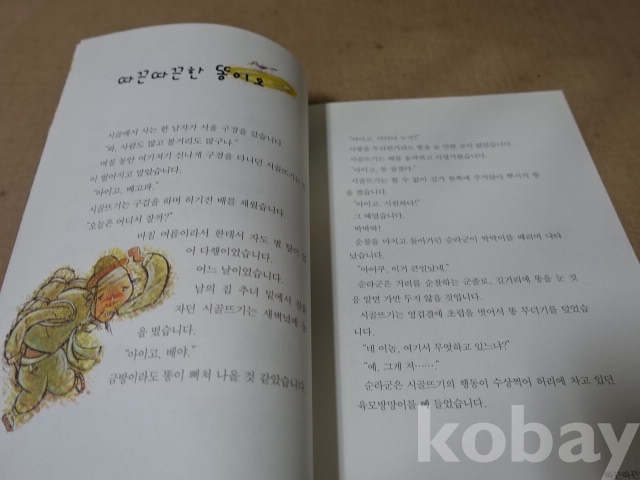 따끈따끈한 똥이오
시골에서 사는 한 남자가 서울 구경을 갔습니다.
"와, 사람도 많고 볼거리도 많구나."
며칠 동안 여기저기 신나게 구경을 다니던 시골뜨기는
이 떨어지고 말았습니다.
"아이고, 배고파."
시골뜨기는 구걸을 하며 허기진 배를 채웠습니다.
"오늘은 어디서 잘까?"
마침 여름이라서 한데서 자도 별 탈이 없
어 다행이었습니다.
어느 날이었습니다.
남의 집 추녀 밑에서 잠을
자던 시골뜨기는 새벽녘에 눈
을 떴습니다.
"아이고, 배야."
금방이라도 똥이 삐져 나올 것 같았습니다.
"아이고, 어디다 누지?"
사방을 두리번거려도 똥을 눌 만한 곳이 없었습니다.
시골뜨기는 배를 움켜쥐고 어정거렸습니다.
"아이고, 똥 쌀라."
시골뜨기는 할 수 없이 길가 한쪽에 주저앉아 뿌지직 똥
을 쌌습니다.
"아이고, 시원하다!"
그 때였습니다.
딱딱딱!
순찰을 마치고 돌아가던 순라군이 딱딱이를 때리며 나타
났습니다.
"아이쿠, 이거 큰일났네."
순라군은 거리를 순찰하는 군졸로, 길거리에 똥을 눈 것
을 알면 가만 두지 않을 것입니다.
시골뜨기는 엉겁결에 초립을 벗어서 똥 무더기를 덮었습
니다.
"네 이놈, 여기서 무엇하고 있느냐?"
"예, 그게 저……."
순라군은 시골뜨기의 행동이 수상쩍어 허리에 차고 있던
육모방망이를 빼 들었습니다.
kobay